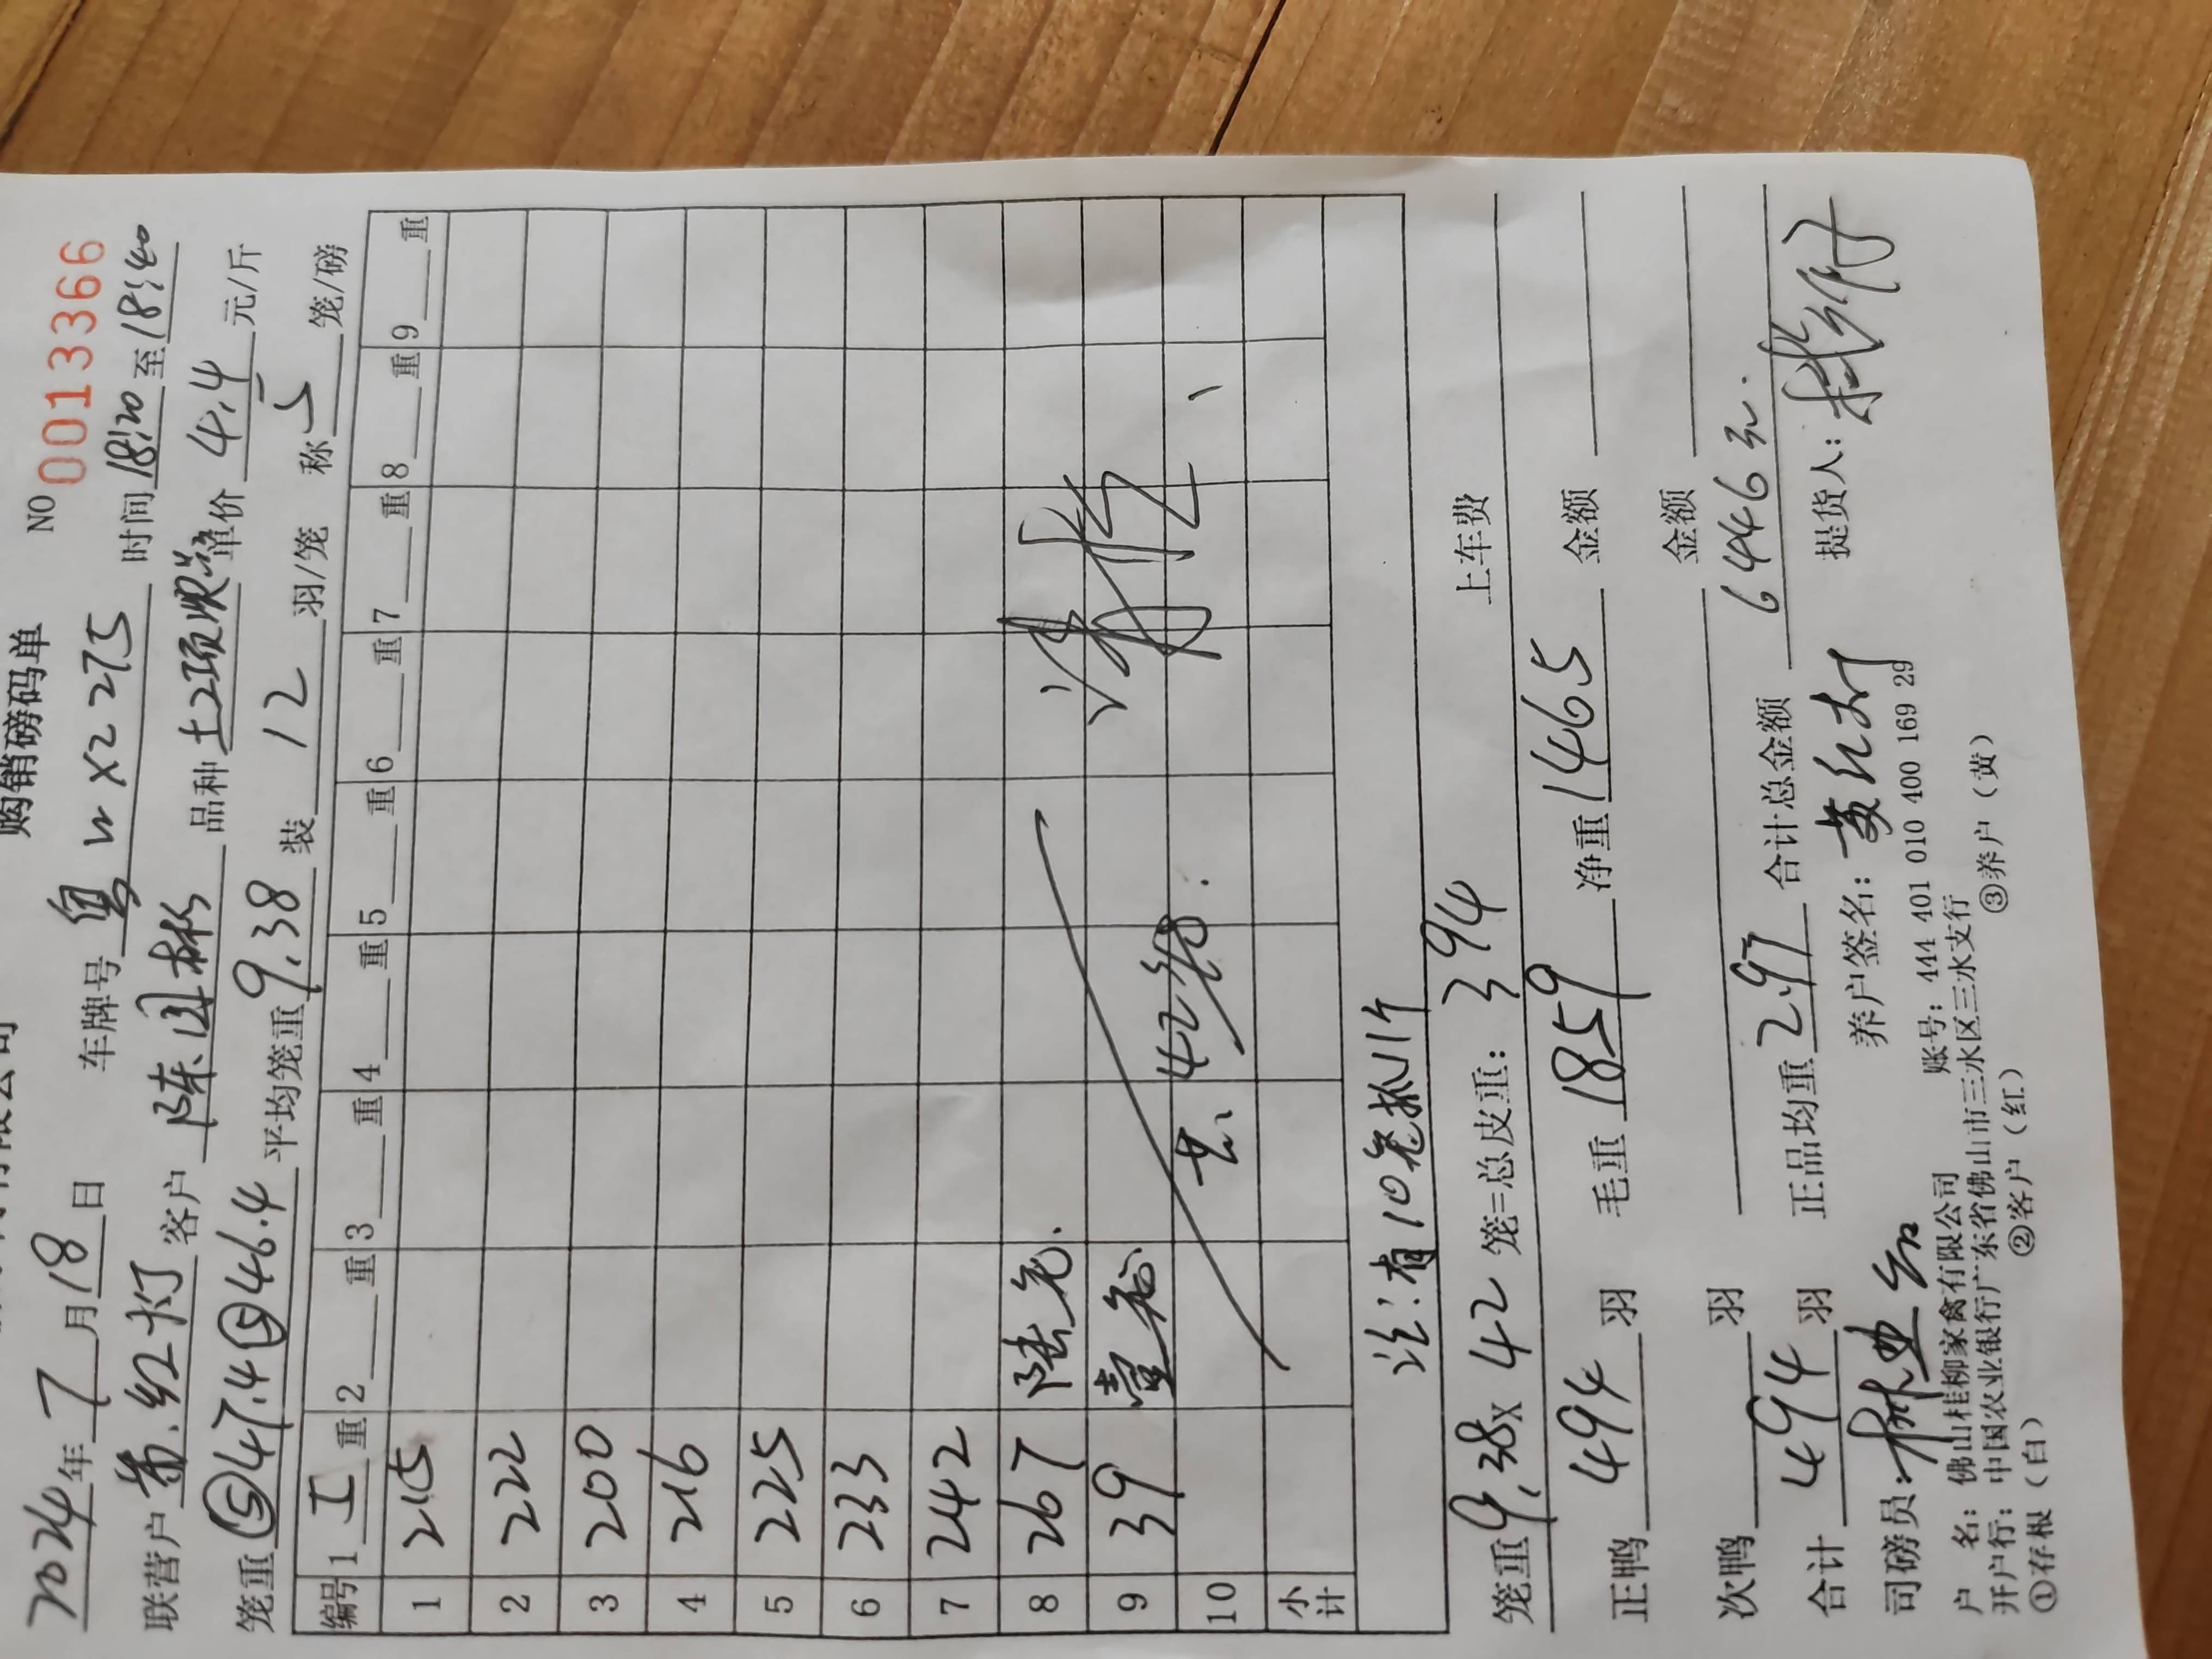 购销磅码单 NO 0013366
2024年7月18日 车牌号 粤WX2275 时间 18:20 至 18:40
联营户 黄红灯 客户 陈国彬 品种 土2项 单价 4.4 元/斤
笼重 ⑤47.4 ⑤46.4 平均笼重 9.38 装 12 羽/笼 称 5 笼/磅
编号 1 工 重 2 重 3 重 4 重 5 重 6 重 7 重 8 重 9 重
1 215
2 222
3 200
4 216
5 225
6 233
7 242
8 267 陆笼.
9 39 壹笼
10 共、42笼.
小计
注:有10笼抓11个
笼重 9.38 x 42 笼=总皮重: 394 上车费
正鸭 494 羽 毛重 1859 净重 1465 金额
次鸭 羽 金额
合计 494 羽 正品均重 2.97 合计总金额 6446元.
司磅员: 养户签名: 黄红灯 提货人:
户 名: 佛山桂柳家禽有限公司 账号: 444 401 010 400 169 29
开户行: 中国农业银行广东省佛山市三水区三水支行
①存根(白) ②客户(红) ③养户(黄)